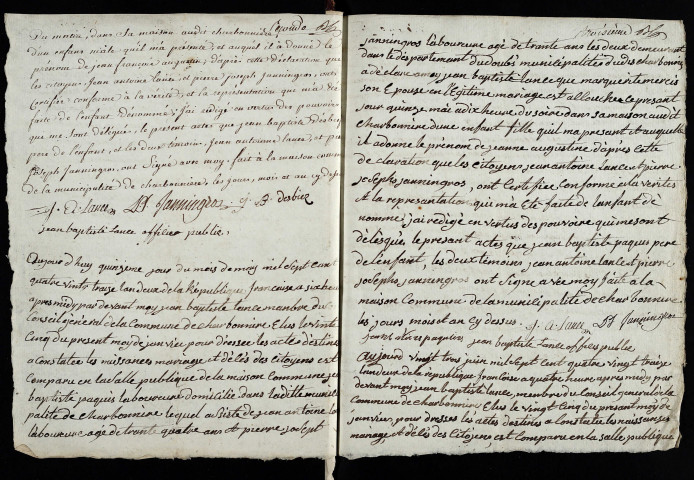 Du matin, dans sa maison audit charbonnière Segondo
d'un enfans mâle qu'il m'a présenté, et auquel il a donné le
prénom de jean françois augustin; d'après cette déclaration que
les citoyens Jean antoine lance et pierre joseph Janningros, ont
certifier conforme à la vérité, et la représentation qui m'a été
faite de l'enfant Dénommé, j'ai rédigé en vertus des pouvoirs
que me sont délégué, le présent actes que jean baptiste desbiez
pere de l'enfant, et les deux temoins, jean antoine lance, et pierre
joseph Janningros, ont Signé avec moy, fait à la maison commune
de la municipalité de charbonnière, les jours, mois et an cy dessus
j. a. lance PJ Janningros j. B. desbiez
jean baptiste lance officier publie,
aujourd'huy quinzieme jour du mois de mois mil sept Cent
quatre vingts traize l'an deux de la Republique francoise a six heure
apres midy par devant moy jean baptiste lance membre du
Conseil général de la Commune de charbonnière Elus le vinte
Cinq du present moy de janvie pour dressée les acte destines
a Constatée les naissances mariage et délés des citoyens est
Comparu en la salle publique de la maison Commune jean
baptiste paquis laboureure domicilié dans laditte munici
palité de charbonnière lequel assisté de jean antoine lance
laboureure agé de trante quatre ans et pierre joseph
troisieme
janningros laboureure agé de trante ans les deux demeurant
dans le departement du doubs municipalités dudis charbonniere
a déclarée a moy jean baptiste lance que marguerite mercier
son Epouse en l'Egitime mariage est allouchée ce presant
jour quinze mai a dix heure du soire dans sa maison audit
charbonnière d'une enfant fille qu'il ma presant et auquelle
il a donne le prenom de jeane augustine d'après cette
declaration que les Citoyens jean antoine lance et pierre
joseph janningros, ont Certifiée Conforme a la verites
et la représantation qui ma Eté faite de l'enfant dé
nommé j'ai rédigé en vertus des pouvoire qui me sont
délégué, le presant actes que jean baptiste paquis pere
de l'enfant, les deux temoins jean antoine lance et pierre
josephs janningros ont signe avec moy faite a la
maison Commune de la municipalité de charbonnière
les jours mois et an cy dessus j. a. lance PJ Janningros
jean baptiste lance officer public
aujourd vingt trois juin mil sept cent quatre vingt traize
l'an deux de la republique francoise a quatre heure apres midy par
devant moy jean baptiste lance, membre du Conseil general de la
Commune de charbonnière Elus le vingt Cinq du presant moy de
janvier, pour dresses les actes destines a Constatée les naissances
mariage, et délés des Citoyens, est Comparu en la salle publique